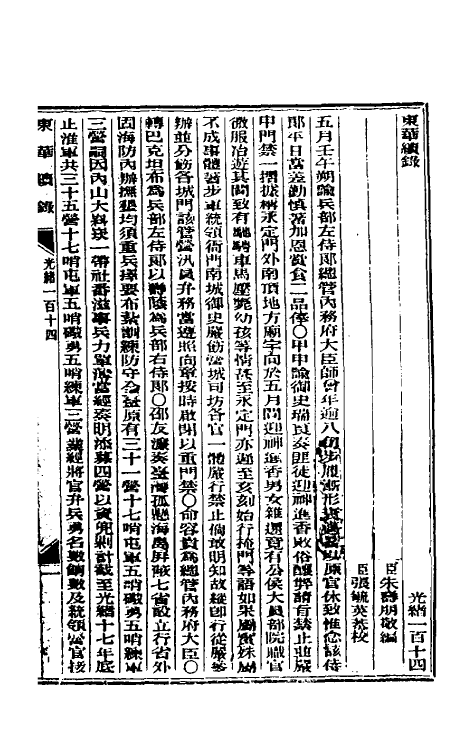 東華續錄
光緒一百十四
臣朱壽朋敬編
臣張毓英恭校
五月壬午朔諭兵部左侍郎總管內務府大臣師曾年逾八旬步履漸形以原官休致惟念該侍
郎平日當差勤慎著加恩賞食二品俸〇甲申諭御史瑞良奏匪徒迎神進香敗俗釀弊請旨禁止並嚴
申門禁一摺據稱永定門外南頂地方廟宇向於五月間迎神進香男女雜遝竟有公侯大員部院職官
微服冶遊其間致有馳騁車馬壓斃幼孩等情甚至永定門亦遲至亥刻始行掩門等語如果屬實殊屬
不成事體著步軍統領衙門南城御史嚴飭營城司坊各官一體嚴行禁止倘敢明知故縱卽行從嚴參
辦並分飭各城門該管營汛員弁務當遵照向章按時啟閉以重門禁〇命容貴爲總管內務府大臣〇
轉巴克坦布爲兵部左侍郎以壽蔭爲兵部右侍郎〇邵友濂奏臺灣孤懸海島屏蔽七省設立行省外
固海防內辦撫墾均須重兵擇要布紮訓練防守全臺原有三十一營十七哨屯軍五哨礮勇五哨練軍
三營嗣因內山大嵙崁一帶社番滋事兵力單薄當經奏明添募四營以資兜剿計截至光緒十七年底
止淮軍共三十五營十七哨屯軍五哨礮勇五哨練軍三營業經將官弁兵勇名數餉數及統領營官接
東華續錄
光緒一百十四
一